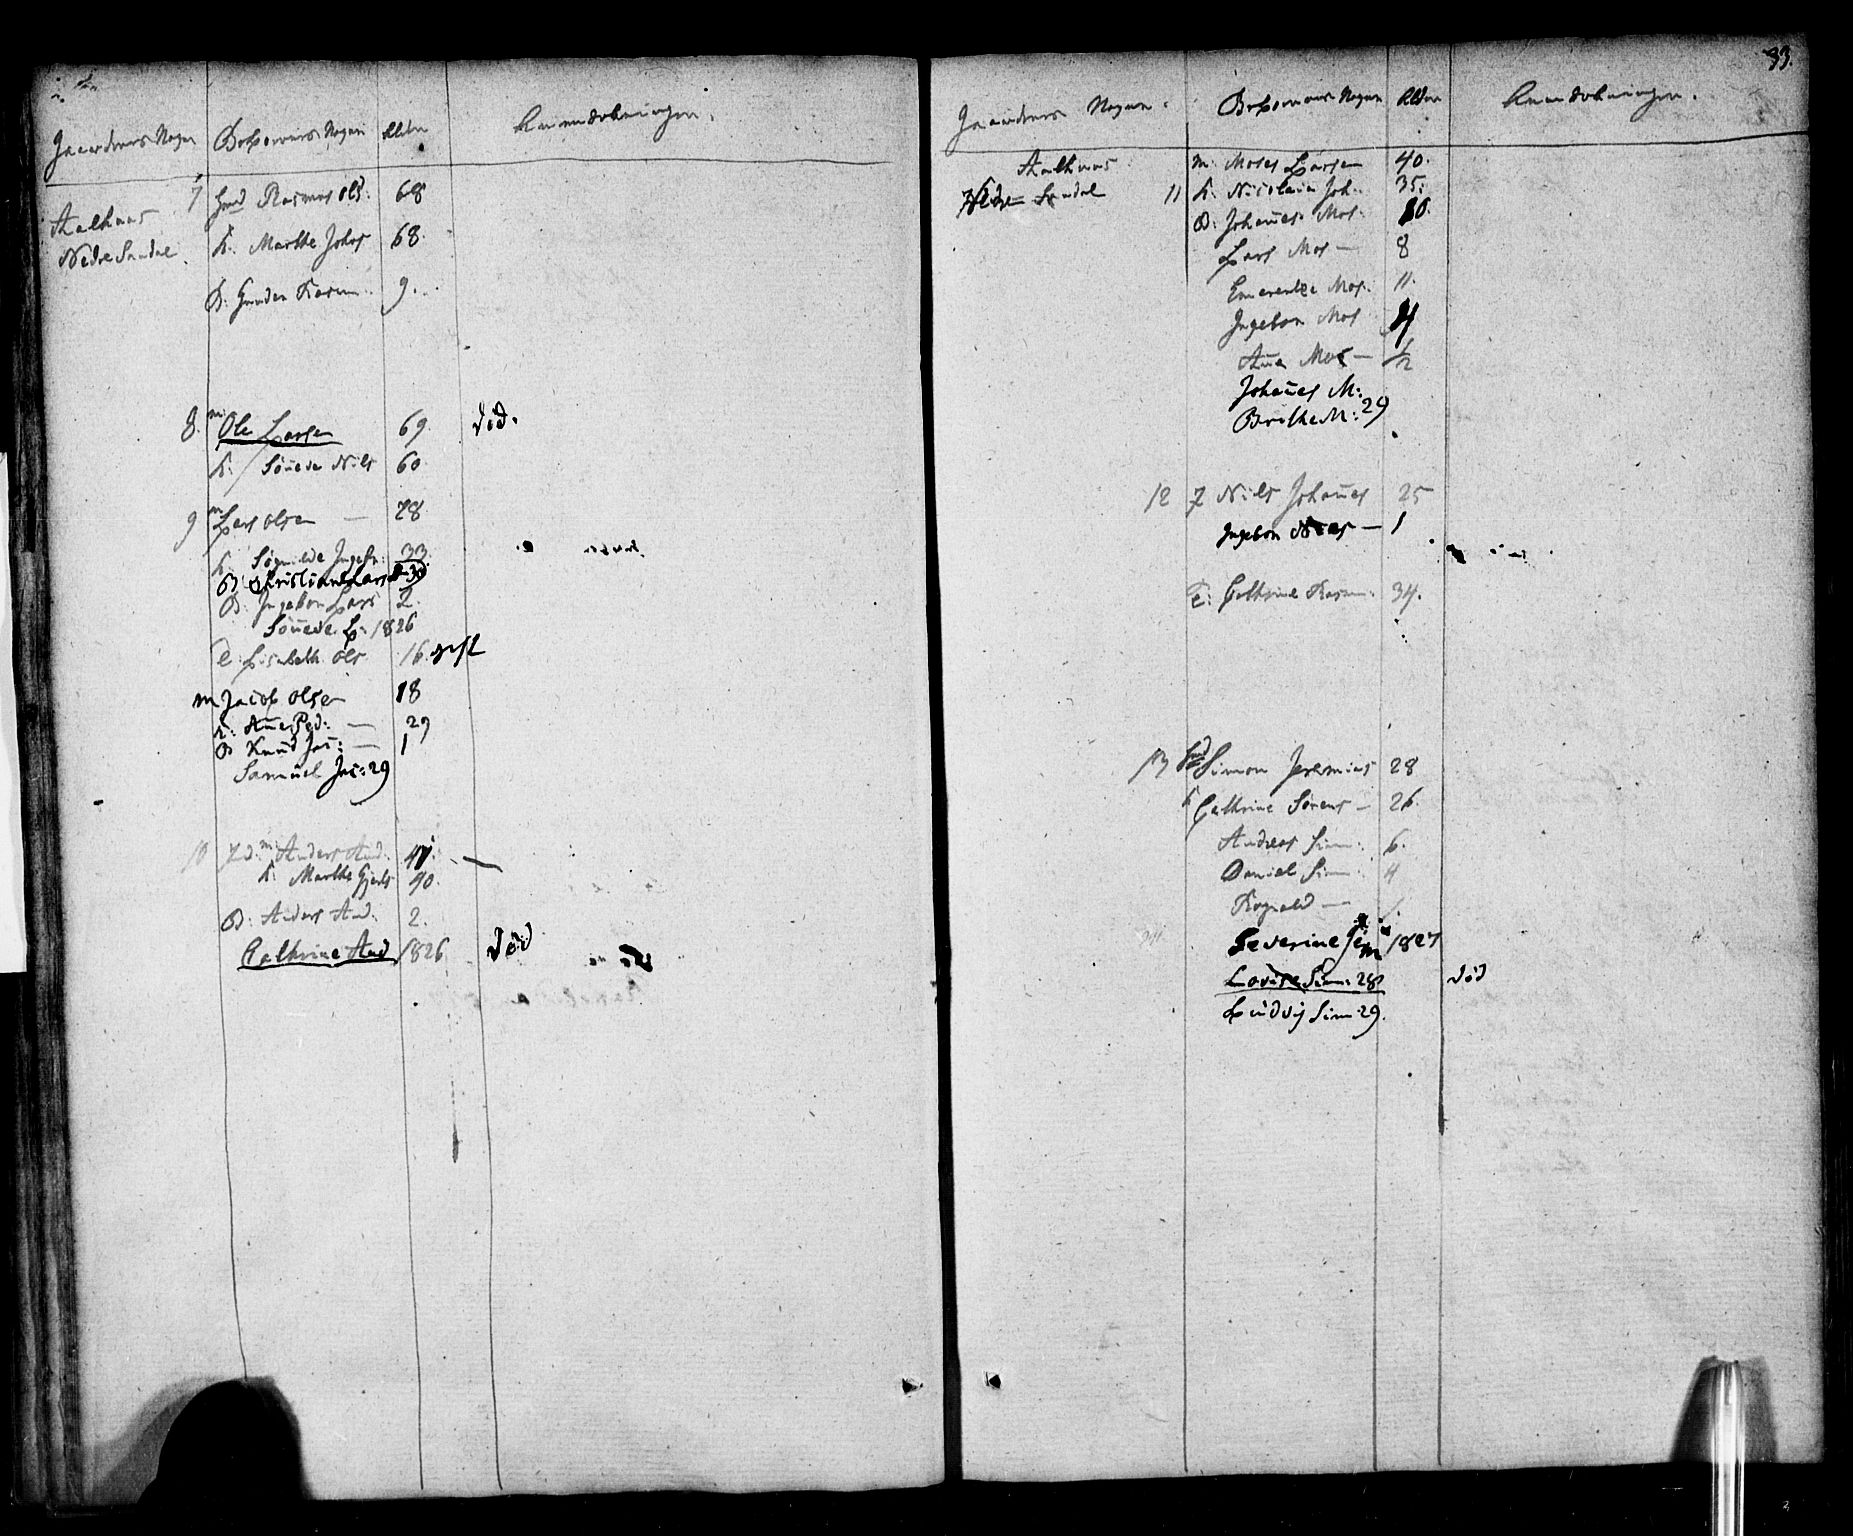 Gaardenes Nafn Beboernes Nafn Alder Anmærkninger.
Aalhuus
Nedre Sandal.
7 Rasmus Ols. 68
K. Marthe Johs 68.
B. Rasm. 9.
8. m Ole Larsen 69. død.
K. Nils 60
9 m Lars Olsen — 28
K. 33
B Christian Lars
B. Ingebor Lars 2.
L. 1826
E. Lisabeth Ols 16.
m Jacob Olsen 18
K: Ane Ped: — 29
B Knud Jac: — 1
Samuel Jac: 29
10 m Anders And. 47.
K. Marthe 40.
B. Anders And. 2.
Cathrine And 1826 død
33.
Gaardenes Nafn. Beboernes Nafn Alder Anmærkninger.
Aalhuus
Nedre Sandal
11 m. Moses Larsen 40.
K. Nicolaia Joh. 35.
B. Johanes Mos. 10.
Lars Mos — 8
Emerentze Mos. 11.
Ingebor Mos 4
Ane Mos — 1/2
Johanes M:
Brithe M: 29
12 Niels Johanes 25
Ingebor — 1
E. Cathrine Rasm. 34.
13 Simon Jeremias 28
K Cathrine Sørens — 26.
Andreas Sim. 6.
Daniel Sim 4
Severine 1827
Lovise Sim: 28 død
Ludvig Sim 29.